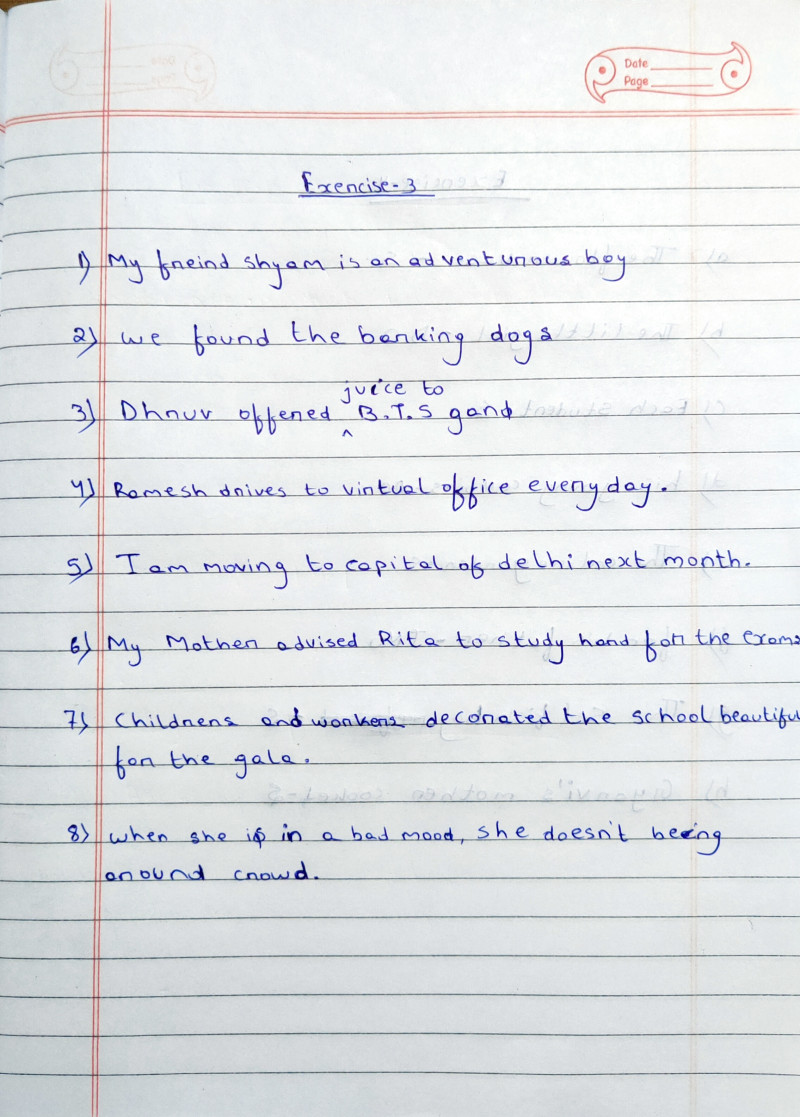 Date
Page
Exercise-3
1) My freind shyam is an adventurous boy
2) we found the barking dogs
juice to
3) Dhruv offered ^ B.T.S gand
4) Ramesh drives to virtual office everyday.
5) I am moving to capital of delhi next month.
6) My Mother advised Rita to study hard for the exams
7) Childrens and workers decorated the school beautiful
for the gala.
8) when she is in a bad mood, she doesn't being
around crowd.